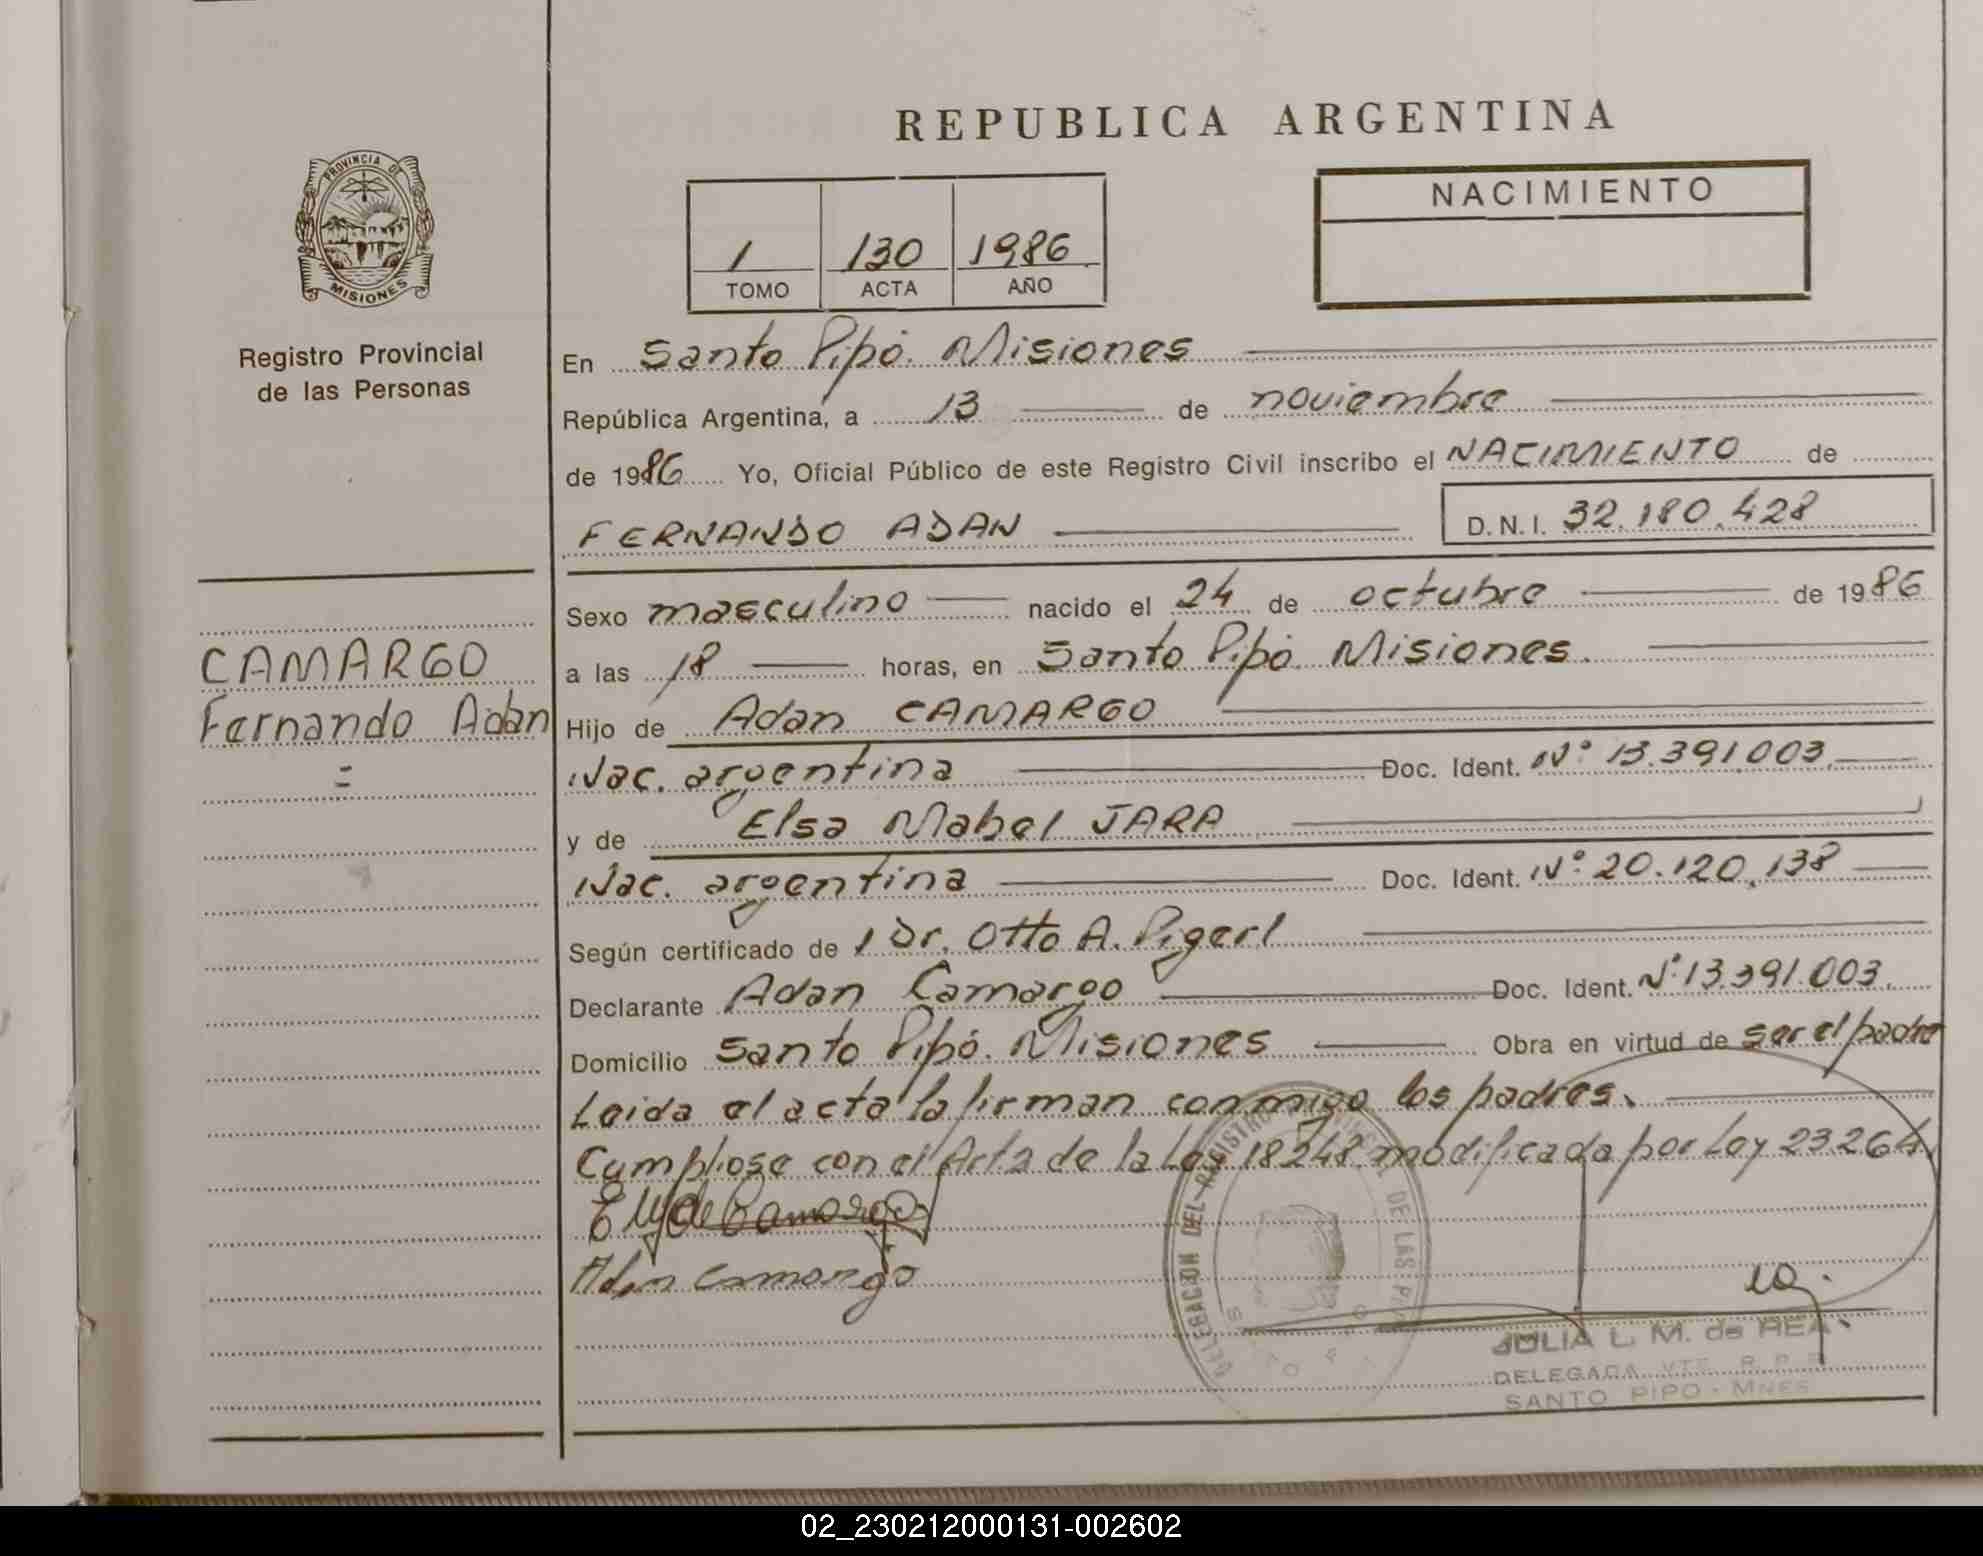 REPUBLICA ARGENTINA
PROVINCIA DE
MISIONES
Registro Provincial
de las Personas
NACIMIENTO
1 130 1986
TOMO ACTA AÑO
En Santo Pipó. Misiones
República Argentina, a 13 de noviembre
de 1986 Yo, Oficial Público de este Registro Civil inscribo el NACIMIENTO de
FERNANDO ADAN D.N.I. 32.180.428
Sexo masculino nacido el 24 de octubre de 1986
CAMARGO
Fernando Adan
=
a las 18 horas, en Santo Pipó. Misiones.
Hijo de Adan CAMARGO
Nac. argentina Doc. Ident. Nº 13.391.003.
y de Elsa Mabel JARA
Nac. argentina Doc. Ident. Nº 20.120.138
Según certificado de 1 Dr. Otto A. Pigerl
Declarante Adan Camargo Doc. Ident. Nº 13.391.003.
Domicilio Santo Pipó. Misiones Obra en virtud de ser el padre
Leida el acta la firman conmigo los padres.
Cumpliose con el Art 2 de la Ley 18248 modificada por Ley 23264
de Camargo
Adan Camargo
DELEGACION DEL REGISTRO PROVINCIAL DE LAS
JULIA L. M. de REA
DELEGADA VTE. R. P. P.
SANTO PIPO - MNES
02_230212000131-002602